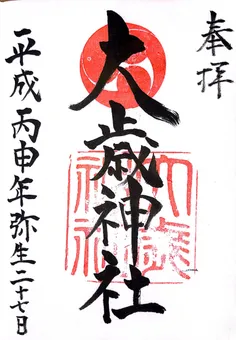 奉拝
大歳神社
平成丙申年弥生二十七日
大歳
神社